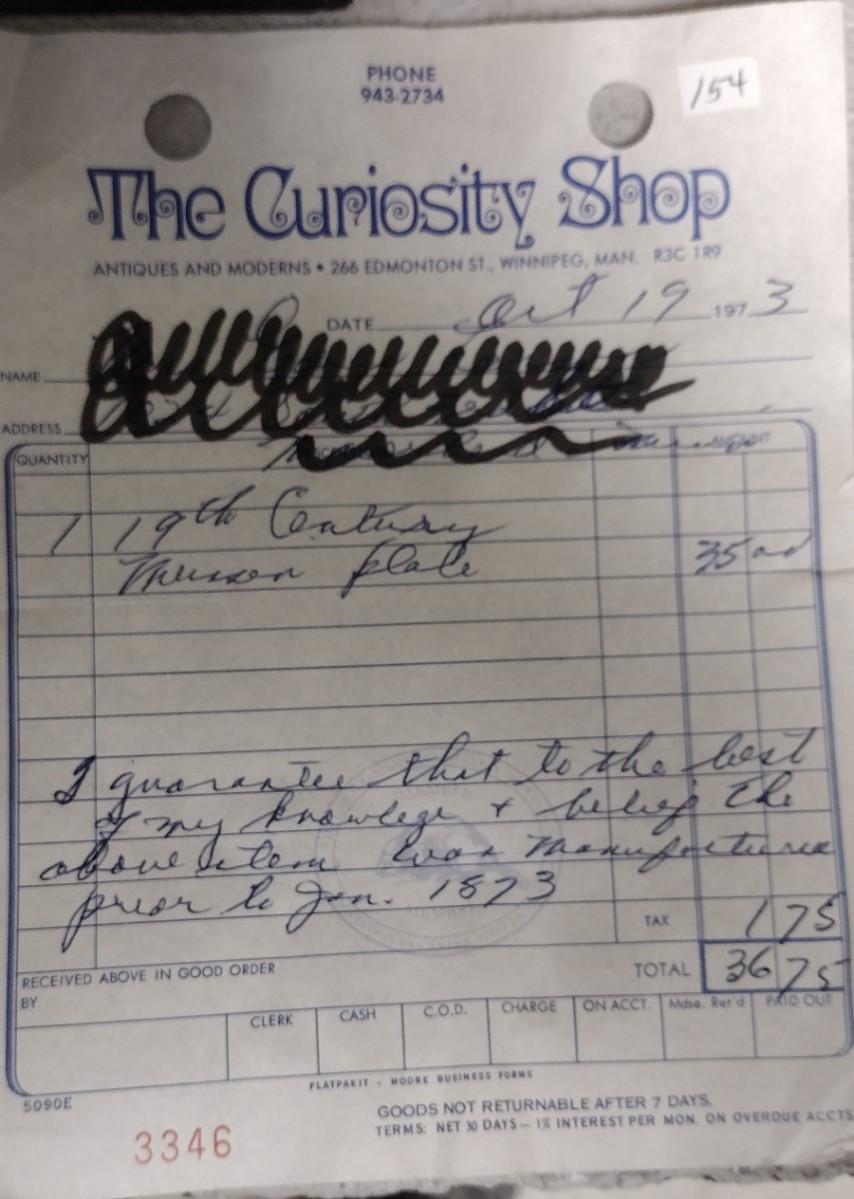 PHONE
943-2734
154
The Curiosity Shop
ANTIQUES AND MODERNS • 266 EDMONTON ST., WINNIPEG, MAN. R3C 1R9
DATE Oct 19 1973
NAME
ADDRESS
QUANTITY AMOUNT
1 19th Century
plate 35 00
I guarantee that to the best
of my knowlege + belief the
above item was manufactured
prior to Jan. 1873
TAX 1 75
RECEIVED ABOVE IN GOOD ORDER TOTAL 36 75
BY
CLERK CASH C.O.D. CHARGE ON ACCT. Mdse. Ret'd PAID OUT
FLATPAKIT - MOORE BUSINESS FORMS
5090E
GOODS NOT RETURNABLE AFTER 7 DAYS.
3346
TERMS: NET 30 DAYS — 1% INTEREST PER MON. ON OVERDUE ACCTS